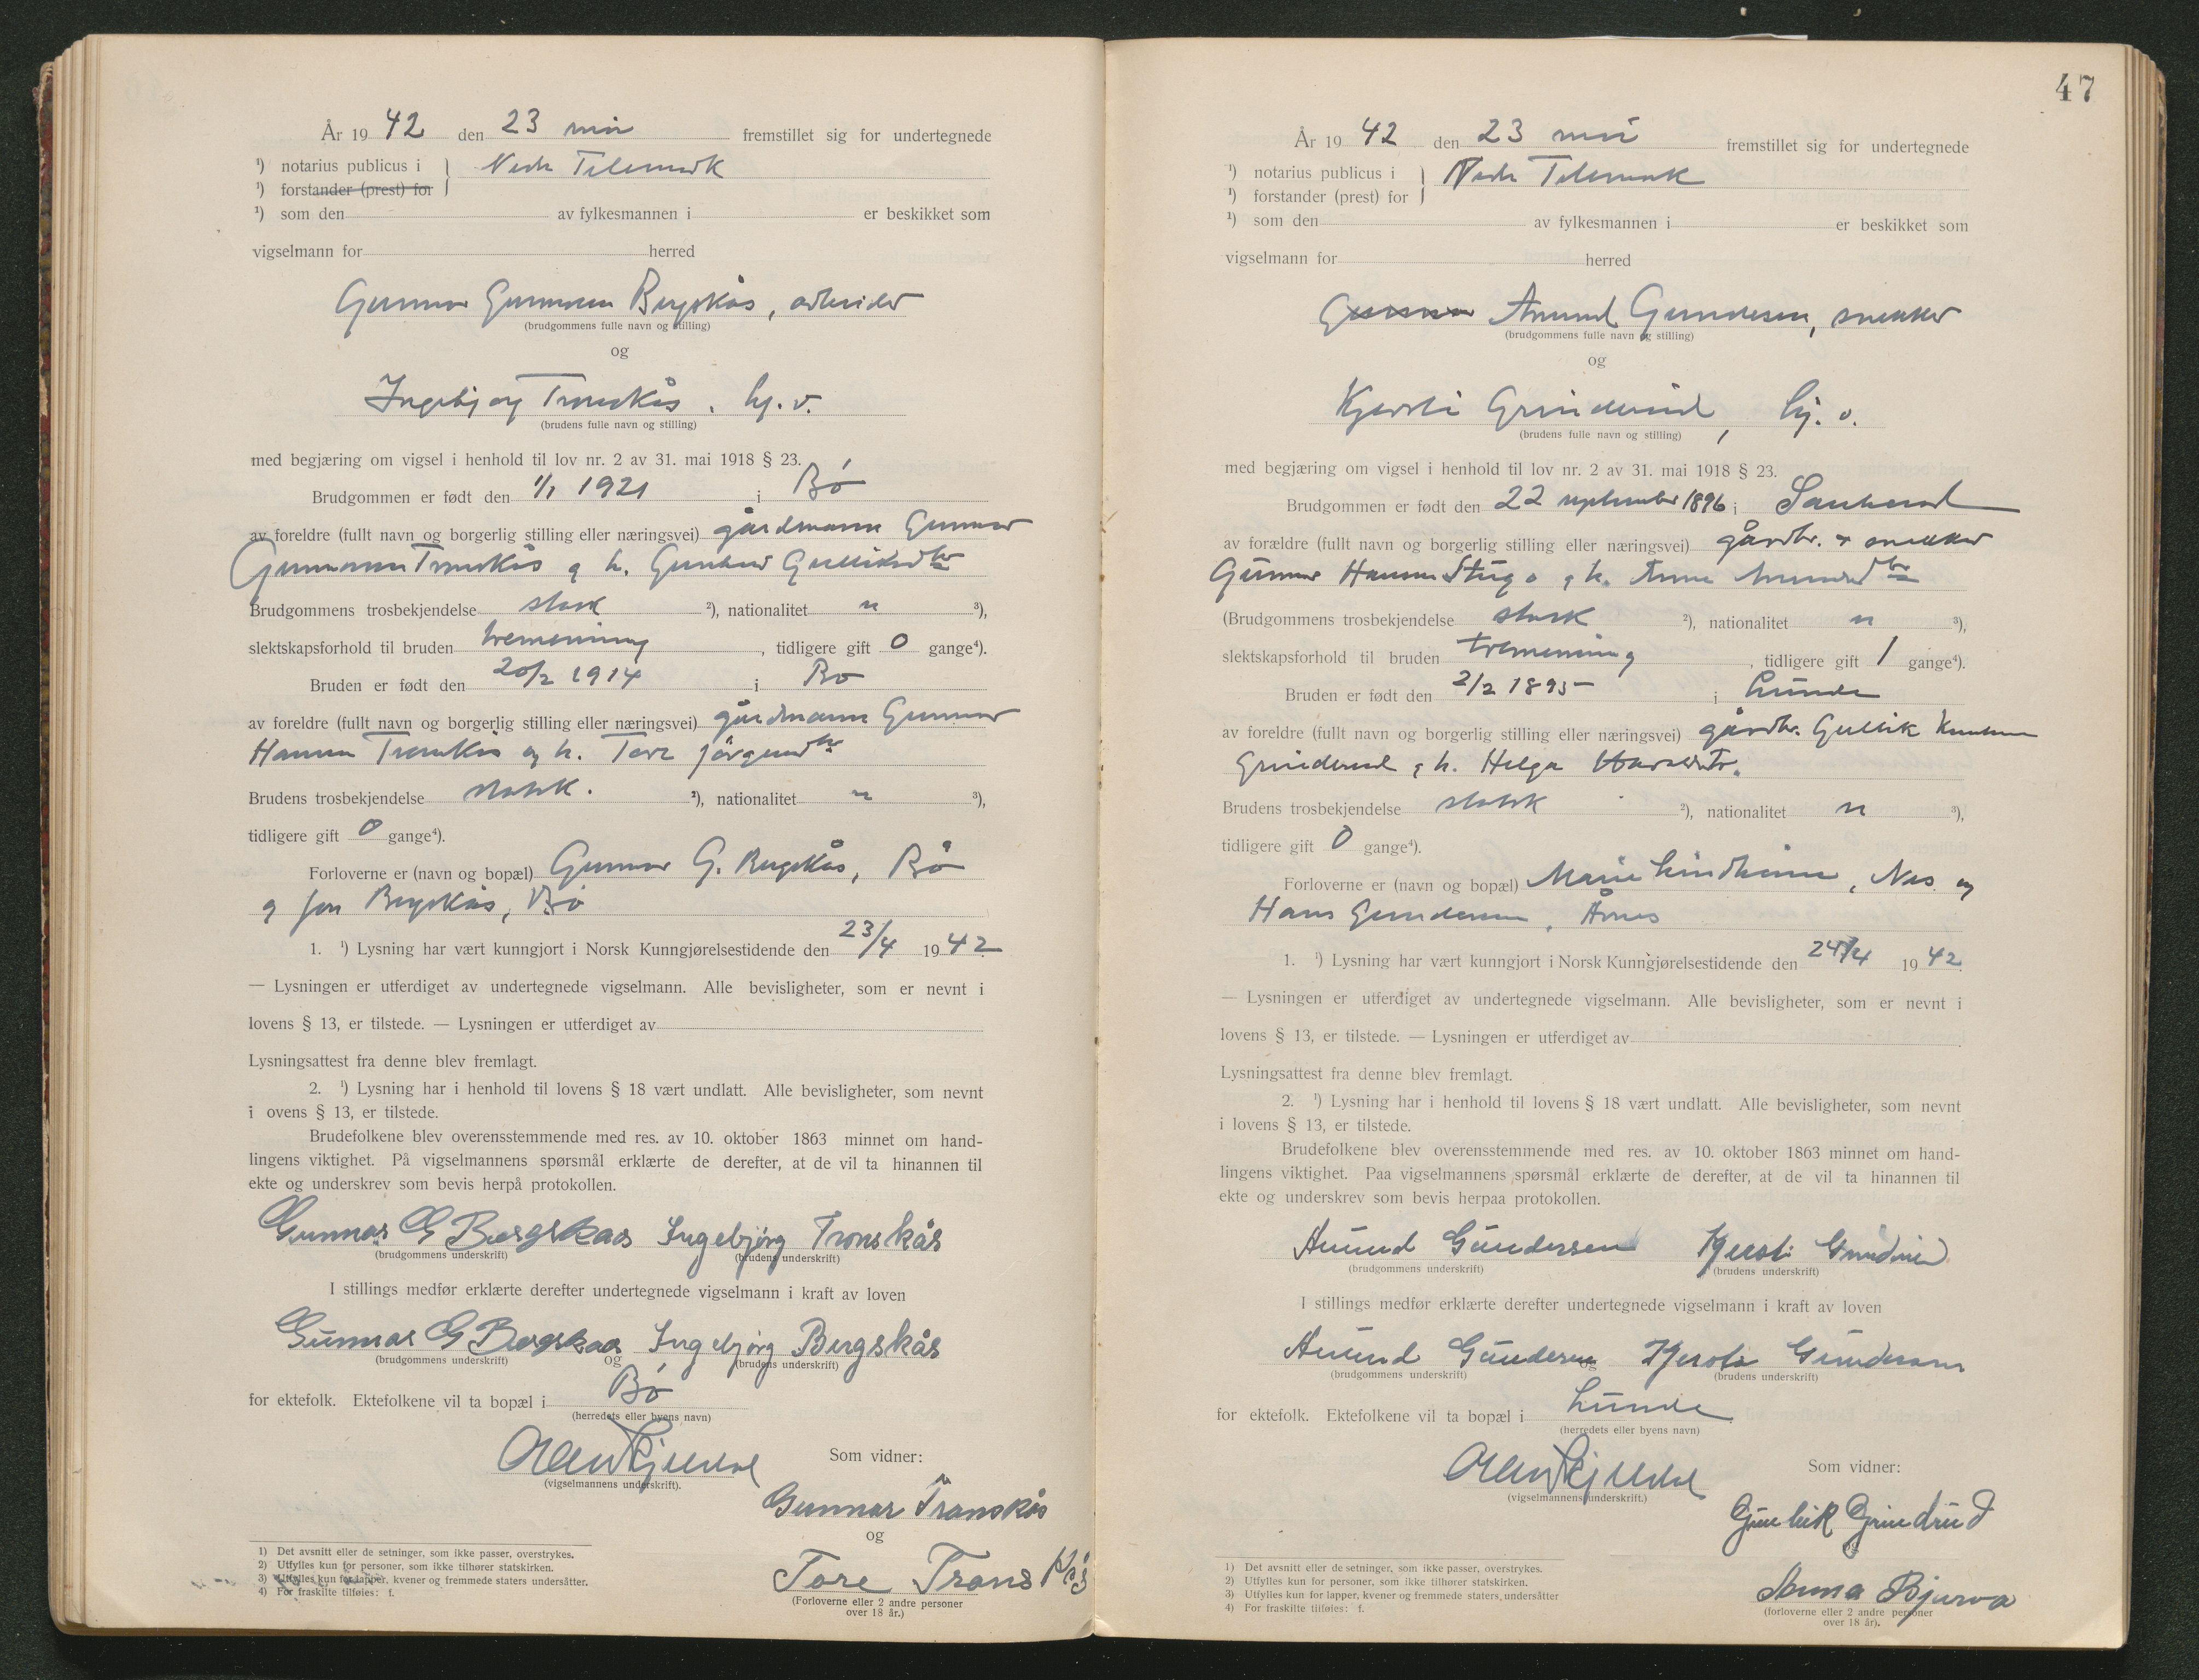 År 19 42 den 23 mai fremstillet sig for undertegnede
¹) notarius publicus i } Nedre Telemark
¹) forstander (prest) for
¹) som den av fylkesmannen i er beskikket som
vigselmann for herred
Gunnar Gunnarsen Bergskås, arbeider
(brudgommens fulle navn og stilling)
og
Ingebjørg Tronskås, hj.v.
(brudens fulle navn og stilling)
med begjæring om vigsel i henhold til lov nr. 2 av 31. mai 1918 § 23.
Brudgommen er født den 1/1 1921 i Bø
av foreldre (fullt navn og borgerlig stilling eller næringsvei) gårdmann Gunnar
Gunnarsen Tronskås og h. Gulliksdtr
Brudgommens trosbekjendelse statsk ²), nationalitet n ³),
slektskapsforhold til bruden tremenning, tidligere gift 0 gange⁴).
Bruden er født den 20/2 1914 i Bø
av foreldre (fullt navn og borgerlig stilling eller næringsvei) gårdmann Gunnar
Hansen Tronskås og h. Tore Jørgensdtr
Brudens trosbekjendelse statsk. ²), nationalitet n ³),
tidligere gift 0 gange⁴).
Forloverne er (navn og bopæl) Gunnar G. Bergskås, Bø
og Jon Bergskås, Bø
1. ¹) Lysning har vært kunngjort i Norsk Kunngjørelsestidende den 23/4 1942
— Lysningen er utferdiget av undertegnede vigselmann. Alle bevisligheter, som er nevnt i
lovens § 13, er tilstede. — Lysningen er utferdiget av
Lysningsattest fra denne blev fremlagt.
2. ¹) Lysning har i henhold til lovens § 18 vært undlatt. Alle bevisligheter, som nevnt
i ovens § 13, er tilstede.
Brudefolkene blev overensstemmende med res. av 10. oktober 1863 minnet om hand-
lingens viktighet. På vigselmannens spørsmål erklærte de derefter, at de vil ta hinannen til
ekte og underskrev som bevis herpå protokollen.
Gunnar G Bergskaas Ingebjørg Tronskås
(brudgommens underskrift) (brudens underskrift)
I stillings medfør erklærte derefter undertegnede vigselmann i kraft av loven
Gunnar G Bergskaas og Ingebjørg Bergskås
(brudgommens underskrift) (brudens underskrift)
for ektefolk. Ektefolkene vil ta bopæl i Bø
(herredets eller byens navn)
Som vidner:
(vigselmannens underskrift).
Gunnar Tronskås
og
Tore Tronskås
(Forloverne eller 2 andre personer
over 18 år.)
1) Det avsnitt eller de setninger, som ikke passer, overstrykes.
2) Utfylles kun for personer, som ikke tilhører statskirken.
3) Utfylles kun for lapper, kvener og fremmede staters undersåtter.
4) For fraskilte tilføies: f.
47
År 19 42 den 23 mai fremstillet sig for undertegnede
¹) notarius publicus i } Nedre Telemark
¹) forstander (prest) for
¹) som den av fylkesmannen i er beskikket som
vigselmann for herred
Gunnar Amund Gundersen, snekker
(brudgommens fulle navn og stilling)
og
Kjersti Grinderud, hj.v.
(brudens fulle navn og stilling)
med begjæring om vigsel i henhold til lov nr. 2 av 31. mai 1918 § 23.
Brudgommen er født den 22 september 1896 i Sauherad
av forældre (fullt navn og borgerlig stilling eller næringsvei) gårdbr. & snekker
Gunnar Hansen og h. Anne Amundsdtr
(Brudgommens trosbekjendelse statsk ²), nationalitet n ³),
slektskapsforhold til bruden tremenning, tidligere gift 1 gange⁴).
Bruden er født den 2/2 1895 i Lunde
av foreldre (fullt navn og borgerlig stilling eller næringsvei) gårdbr. Gullik Knutsen
Grinderud og h. Helga
Brudens trosbekjendelse statsk ²), nationalitet n ³),
tidligere gift 0 gange⁴).
Forloverne er (navn og bopæl) Marie Lindheim, Nes og
Hans Gundersen, Årnes
1. ¹) Lysning har vært kunngjort i Norsk Kunngjørelsestidende den 24/4 1942
— Lysningen er utferdiget av undertegnede vigselmann. Alle bevisligheter, som er nevnt i
lovens § 13, er tilstede. — Lysningen er utferdiget av
Lysningsattest fra denne blev fremlagt.
2. ¹) Lysning har i henhold til lovens § 18 vært undlatt. Alle bevisligheter, som nevnt
i lovens § 13, er tilstede.
Brudefolkene blev overensstemmende med res. av 10. oktober 1863 minnet om hand-
lingens viktighet. Paa vigselmannens spørsmål erklærte de derefter, at de vil ta hinannen til
ekte og underskrev som bevis herpaa protokollen.
Amund Gundersen Kjersti Grinderud
(brudgommens underskrift) (brudens underskrift)
I stillings medfør erklærte derefter undertegnede vigselmann i kraft av loven
Amund Gundersen og Kjersti Gundersen
(brudgommens underskrift) (brudens underskrift)
for ektefolk. Ektefolkene vil ta bopæl i Lunde
(herredets eller byens navn)
Som vidner:
(vigselmannens underskrift.)
Gunleik Grindrud
og
Anna Bjurva
(forloverne eller 2 andre personer
over 18 år).
1) Det avsnitt eller de setninger, som ikke passer, overstrykes.
2) Utfylles kun for personer, som ikke tilhører statskirken.
3) Utfylles kun for lapper, kvener og fremmede staters undersåtter
4) For fraskilte tilføies: f.